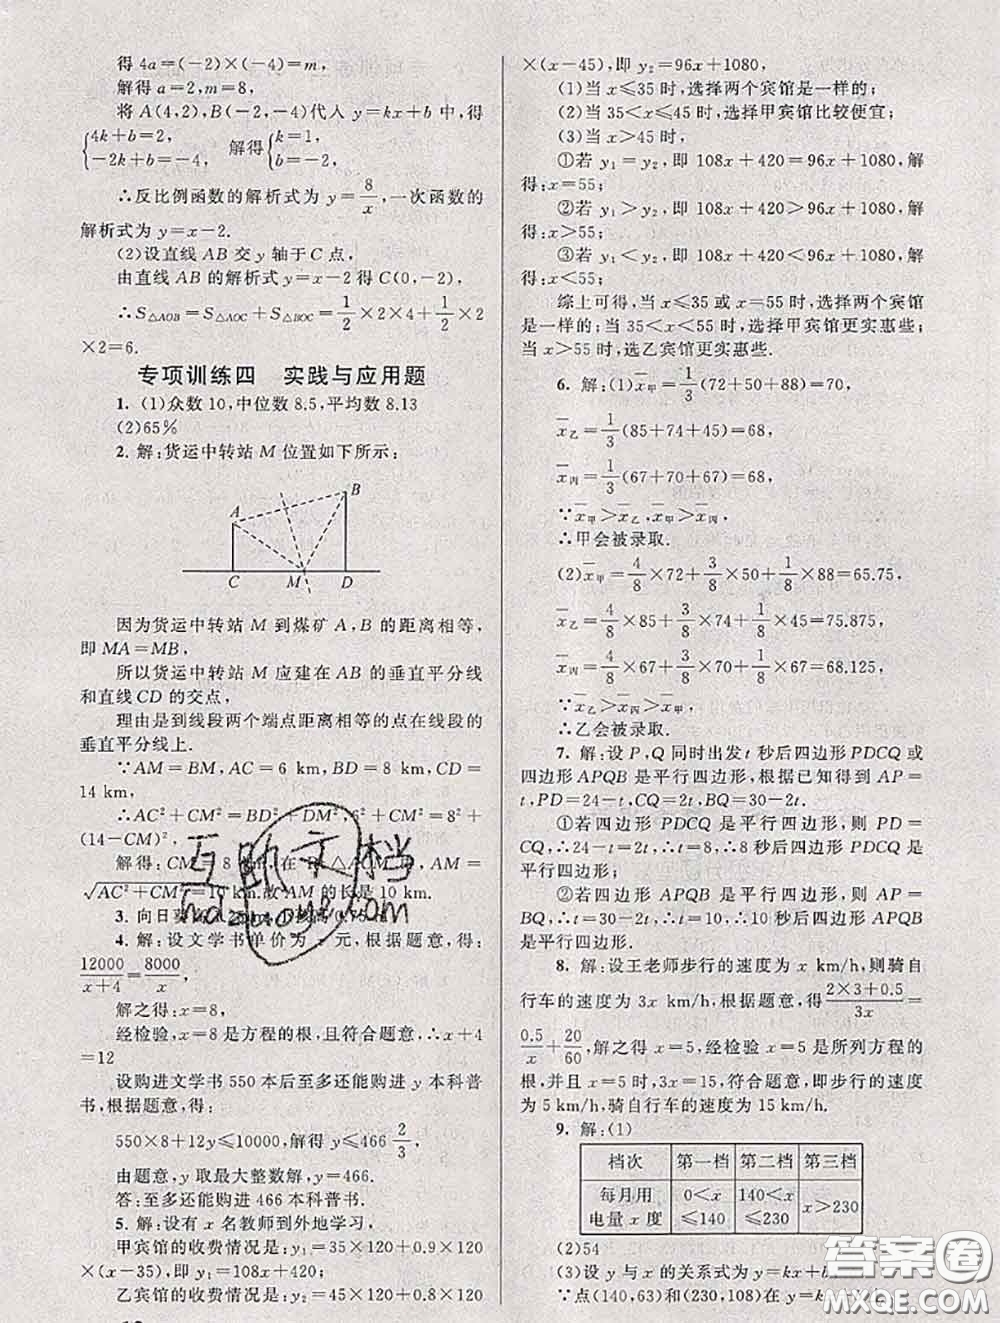 得 4a=(-2)×(-4)=m,
解得 a=2,m=8,
将 A(4,2),B(-2,-4)代人 y=kx+b 中,得
{4k+b=2, -2k+b=-4, 解得{k=1, b=-2.
∴反比例函数的解析式为 y=8/x,一次函数的
解析式为 y=x-2.
(2)设直线 AB 交 y 轴于 C 点,
由直线 AB 的解析式 y=x-2 得 C(0,-2),
∴S△AOB=S△AOC+S△BOC=1/2×2×4+1/2×2
×2=6.
专项训练四 实践与应用题
1. (1)众数 10,中位数 8.5,平均数 8.13
(2)65%
2. 解:货运中转站 M 位置如下所示:
B
A
C M D
因为货运中转站 M 到煤矿 A,B 的距离相等,
即 MA=MB,
所以货运中转站 M 应建在 AB 的垂直平分线
和直线 CD 的交点,
理由是到线段两个端点距离相等的点在线段的
垂直平分线上.
∵AM=BM,AC=6 km,BD=8 km,CD=
14 km,
∴AC²+CM²=BD²+DM²,6²+CM²=8²+
(14-CM)²,
解得:CM=8 km,在 Rt△ACM 中,AM=
√AC²+CM²=10 km.故 AM 的长是 10 km.
3. 向日葵
4. 解:设文学书单价为 x 元,根据题意,得:
12000/(x+4)=8000/x,
解之得:x=8,
经检验,x=8 是方程的根,且符合题意,∴x+4
=12
设购进文学书 550 本后至多还能购进 y 本科普
书,根据题意,得:
550×8+12y≤10000,解得 y≤466 2/3,
由题意,y 取最大整数解,y=466.
答:至多还能购进 466 本科普书.
5. 解:设有 x 名教师到外地学习,
甲宾馆的收费情况是:y₁=35×120+0.9×120
×(x-35),即 y₁=108x+420;
乙宾馆的收费情况是:y₂=45×120+0.8×120
×(x-45),即 y₂=96x+1080,
(1)当 x≤35 时,选择两个宾馆是一样的;
(2)当 35<x≤45 时,选择甲宾馆比较便宜;
(3)当 x>45 时,
①若 y₁=y₂,即 108x+420=96x+1080,解
得:x=55;
②若 y₁>y₂,即 108x+420>96x+1080,解
得:x>55;
③若 y₁<y₂,即 108x+420<96x+1080,解
得:x<55;
综上可得,当 x≤35 或 x=55 时,选择两个宾馆
是一样的;当 35<x<55 时,选择甲宾馆更实惠些;
当 x>55 时,选乙宾馆更实惠些.
6. 解:(1)x̄甲=1/3(72+50+88)=70,
x̄乙=1/3(85+74+45)=68,
x̄丙=1/3(67+70+67)=68,
∵x̄甲>x̄乙,x̄甲>x̄丙,
∴甲会被录取.
(2)x̄甲=4/8×72+3/8×50+1/8×88=65.75,
x̄乙=4/8×85+3/8×74+1/8×45=75.875,
x̄丙=4/8×67+3/8×70+1/8×67=68.125,
∵x̄乙>x̄丙>x̄甲,
∴乙会被录取.
7. 解:设 P,Q 同时出发 t 秒后四边形 PDCQ 或
四边形 APQB 是平行四边形,根据已知得到 AP=
t,PD=24-t,CQ=2t,BQ=30-2t.
①若四边形 PDCQ 是平行四边形,则 PD=
CQ,∴24-t=2t,∴t=8,∴8 秒后四边形 PDCQ 是
平行四边形;
②若四边形 APQB 是平行四边形,则 AP=
BQ,∴t=30-2t,∴t=10,∴10 秒后四边形 APQB
是平行四边形.
8. 解:设王老师步行的速度为 x km/h,则骑自
行车的速度为 3x km/h,根据题意,得(2×3+0.5)/3x=
0.5/x+20/60,解之得 x=5,经检验 x=5 是所列方程的
根,并且 x=5 时,3x=15,符合题意,即步行的速度
为 5 km/h,骑自行车的速度为 15 km/h.
9. 解:(1)
档次 第一档 第二档 第三档
每月用电量 x 度 0<x≤140 140<x≤230 x>230
(2)54
(3)设 y 与 x 的关系式为 y=kx+b.
∵点(140,63)和(230,108)在 y=kx+b
互助文档
hdzuoye.com
答案圈
MXQE.COM